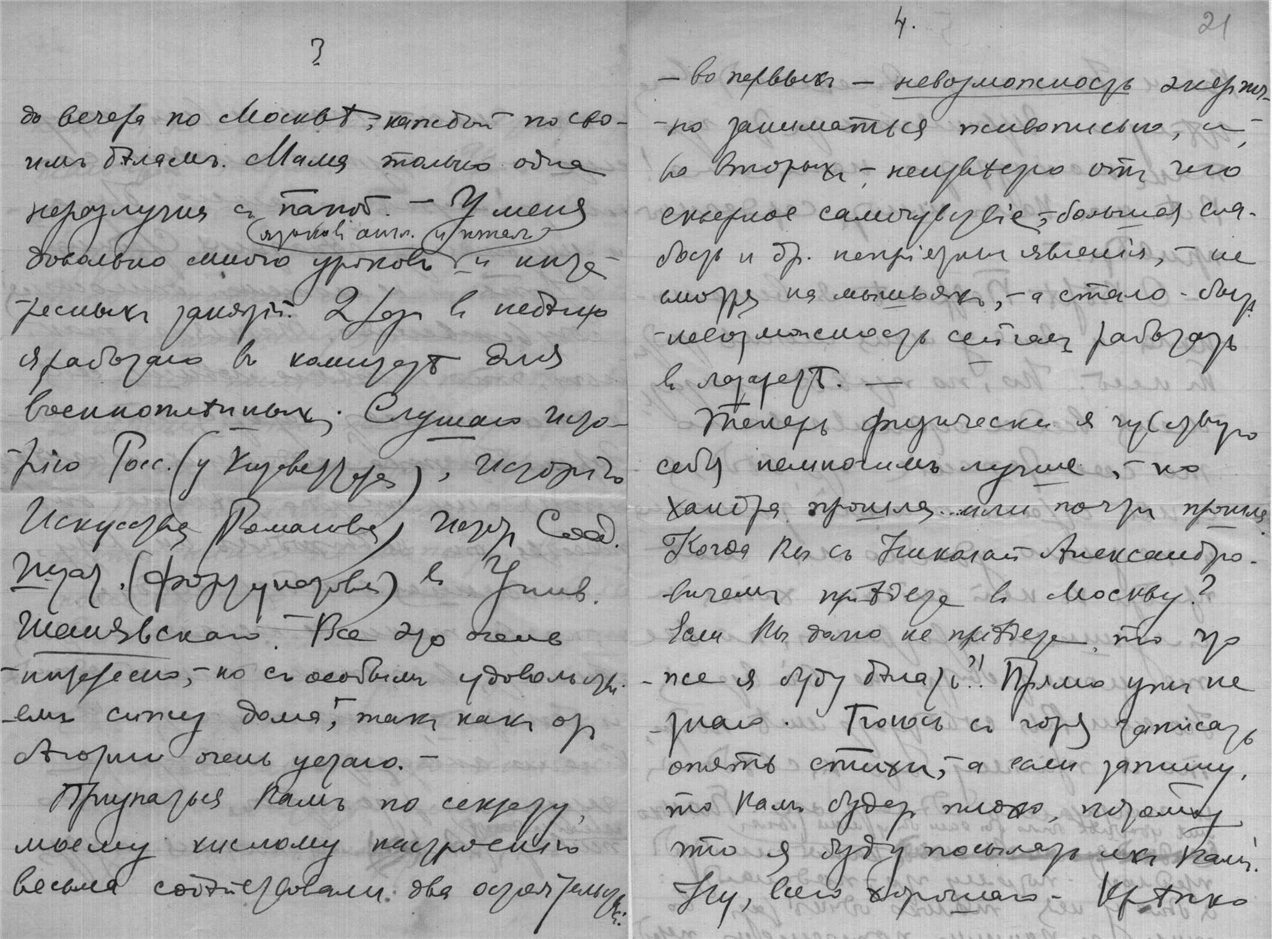 3
до вечера по Москвѣ, каждый по сво-
имъ дѣламъ. Мама только одна
неразлучна съ папой. – У меня
(языковъ англ. и итал.)
довольно много уроковъ и инте-
ресныхъ занятій. 2 раза въ недѣлю
я работаю въ комитетѣ для
военноплѣнныхъ. Слушаю исто-
рію Росс. (у Кизеветтера), Исторію
Искусства (Романова), Истор.
Итал. (Фортунатова) въ Унив.
Шанявскаго. Все это очень
интересно, – но съ особымъ удовольстві-
емъ сижу дома, такъ какъ от
очень устаю. –
Признаться Вамъ по секрету,
моему кислому настроенію
весьма содѣйствовали два обстоятельства:
4.
21
– во первыхъ – невозможность энергич-
но заниматься живописью, и,
во вторыхъ, – неизвѣстно отъ чего
скверное самочувствіе, – большая сла-
бость и др. непріятныя явленія, не
смотря на мышьякъ, – а стало-быть
невозможность сейчасъ работать
въ лазаретѣ. —
Теперь физически я чувствую
себя немногимъ лучше, – но
хандра прошла... или почти прошла.
Когда Вы съ Николай Александро-
вичемъ пріѣдете въ Москву?
Если Вы долго не пріѣдете, то что
же я буду дѣлать?! Прямо ужъ не
знаю. Боюсь съ горя написать
опять стихи, – а если запишу,
то Вамъ будетъ плохо, потому
что я буду посылать ихъ Вамъ.
Ну, всего хорошаго – Крѣпко